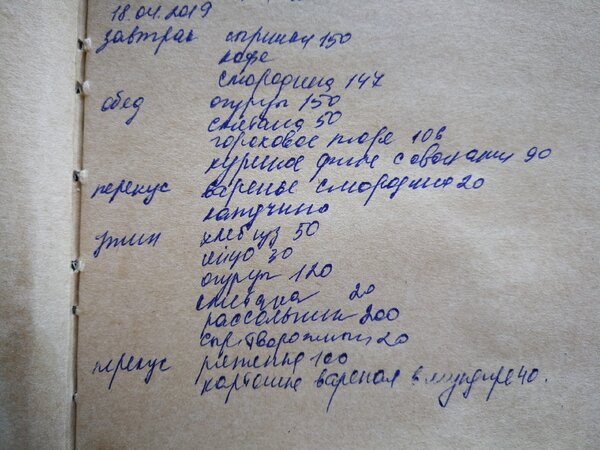 18.04.2019
завтрак сырники 150
кофе
смородина 147
обед огурцы 150
сметана 50
гороховое пюре 106
куриное филе с овощами 90
перекус варенье смородина 20
капучино
ужин хлеб цз 50
яйцо 30
огурцы 120
сметана 20
рассольник 200
сыр творожный 20
перекус ряженка 100
картошка вареная в мундире 40.